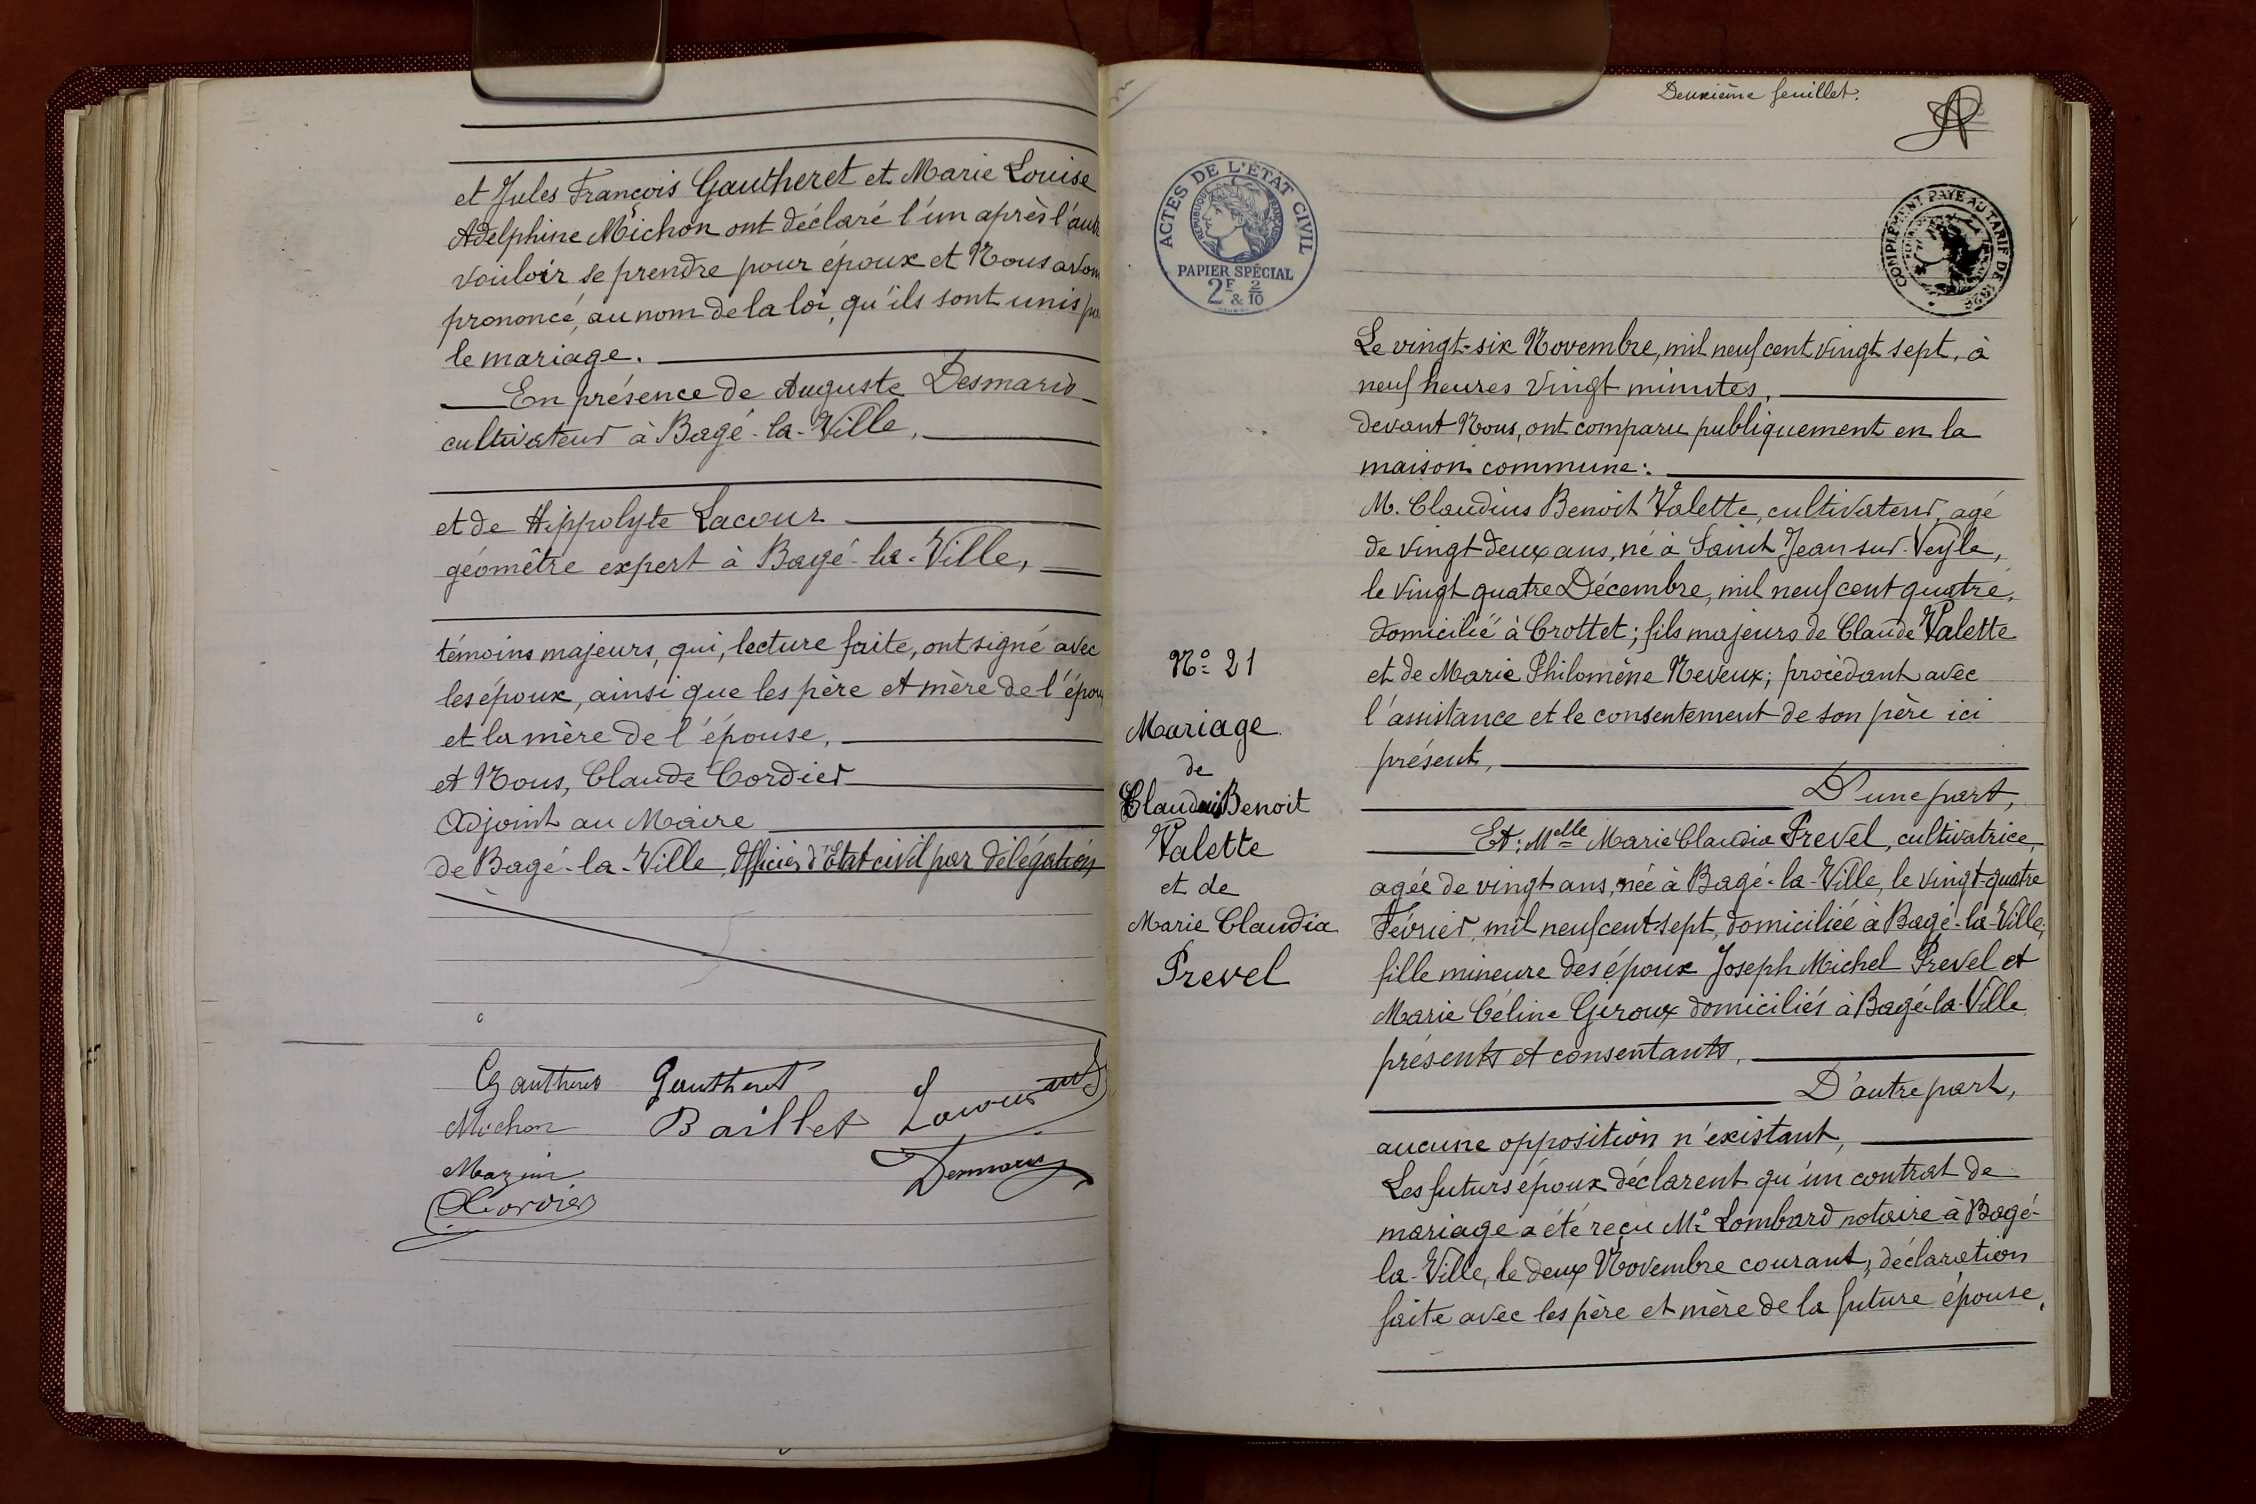 et Jules François Gautheret et Marie Louise
Adelphine Michon ont déclaré l'un après l'aut
vouloir se prendre pour époux et Nous avon
prononcé, au nom de la loi, qu'ils sont unis pa
le mariage.
En présence de Auguste Desmaris
cultivateur à Bagé-la-Ville,
et de Hippolyte Lacour
géomêtre expert à Bagé-la-Ville,
témoins majeurs, qui, lecture faite, ont signé avec
les époux, ainsi que les père et mère de l'épou
et la mère de l'épouse,
et Nous, Claude Cordier
Adjoint au Maire
de Bagé-la-Ville, Officier d'Etat civil par délégation
Gautheret Gautheret
Michon Baillet Lacour
Mazuir Desmaris
Cordier
Deuxième feuillet.
ACTES DE L'ÉTAT CIVIL
RÉPUBLIQUE FRANÇAISE
PAPIER SPÉCIAL
2F & 2/10
COMPLÉMENT PAYÉ AU TARIF DE 1926
N° 21
Mariage
de
Claudius Benoit
Valette
et de
Marie Claudia
Prevel
Le vingt-six Novembre, mil neuf cent vingt sept, à
neuf heures vingt minutes,
devant Nous, ont comparu publiquement en la
maison commune:
M. Claudius Benoit Valette, cultivateur, agé
de vingt deux ans, né à Saint Jean-sur-Veyle,
le vingt quatre Décembre, mil neuf cent quatre,
domicilié à Crottet; fils majeurs de Claude Valette
et de Marie Philomène Neveux; procèdant avec
l'assistance et le consentement de son père ici
présent,
D'une part,
Et: Melle Marie Claudia Prevel, cultivatrice,
agée de vingt ans, née à Bagé-la-Ville, le vingt-quatre
Février, mil neuf cent sept, domiciliée à Bagé-la-Ville,
fille mineure des époux Joseph Michel Prevel et
Marie Céline Géroux domiciliés à Bagé-la-Ville
présents et consentants,
D'autre part,
aucune opposition n'existant,
Les futurs époux déclarent qu'un contrat de
mariage a été reçu Me Lombard notaire à Bagé-
la-Ville, le deux Novembre courant, déclaration
faite avec les père et mère de la future épouse,